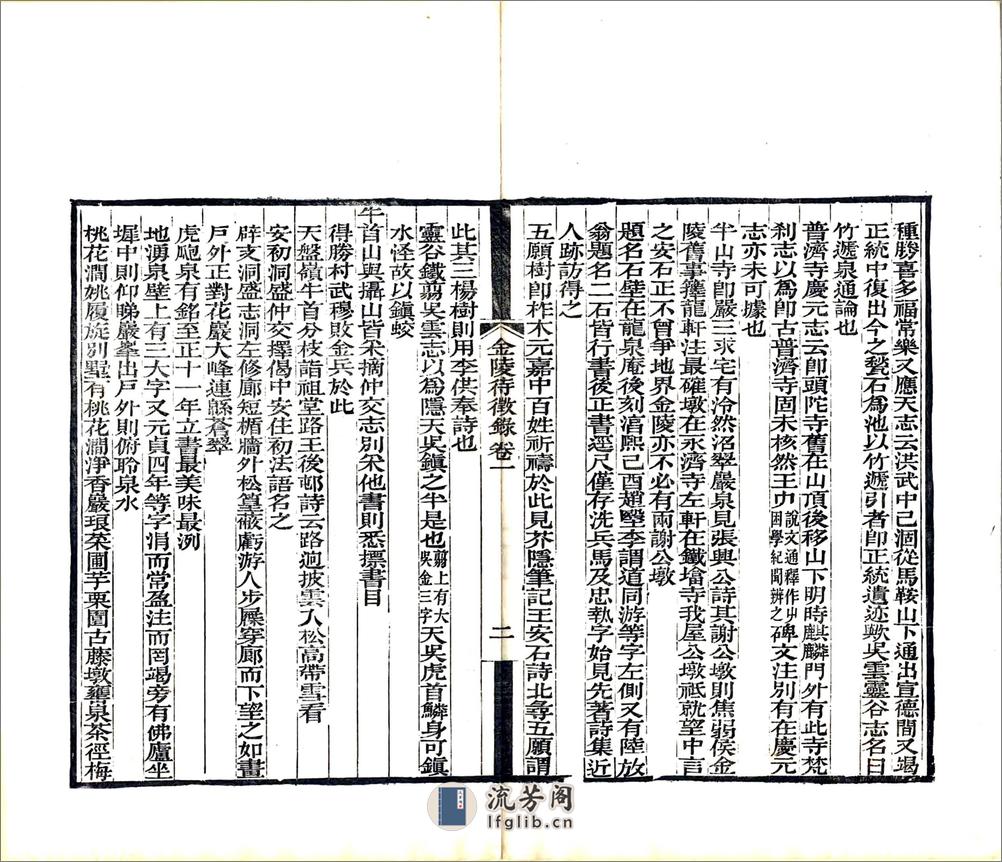 種勝喜多福常樂又應天志云洪武中已涸從馬鞍山下通出宣德間又竭
正統中復出今之甃石爲池以竹遞引者卽正統遺迹歟吳雲靈谷志名曰
竹遞泉通論也
普濟寺慶元志云卽頭陀寺舊在山頂後移山下明時麒麟門外有此寺梵
刹志以爲卽古普濟寺固未核然王屮說文通釋作屮困學紀聞辨之碑文注別有在慶元
志亦未可據也
半山寺卽嚴三求宅有泠然沼翠嚴泉見張興公詩其謝公墩則焦弱侯金
陵舊事擁龍軒注最確墩在永濟寺左軒在鐵塔寺我屋公墩祇就望中言
之安石正不曾爭地界金陵亦不必有兩謝公墩
題名石壁在龍泉庵後刻淳熙己酉趙 李謂道同游等字左側又有陸放
翁題名二石皆行書後正書逕尺僅存洗兵馬及忠執字始見先著詩集近
人跡訪得之
五願樹卽柞木元嘉中百姓祈禱於此見芥隱筆記王安石詩北尋五願謂
金陵待徵錄卷一
二
此其三楊樹則用李供奉詩也
靈谷鐵翦吳雲志以爲隱天吳鎮之半是也翦上有大吳金三字天吳虎首鱗身可鎮
水怪故以鎮蛟
牛首山與攝山皆采摘仲交志別采他書則悉摽書目
得勝村武穆敗金兵於此
天盤嶺牛首分枝詣祖堂路王後邨詩云路迥披雲入松高帶雪看
安初洞盛仲交擇偈中安住初法語名之
辟支洞盛志洞左修廊短楯牆外松篁蔽虧游人步屧穿廊而下望之如畫
戶外正對花嚴大峰連緜蒼翠
虎跑泉有銘至正十一年立書最美味最洌
地湧泉壁上有三大字又元貞四年等字涓而常盈注而罔竭旁有佛廬坐
墀中則仰睇巖峯出戶外則俯聆泉水
桃花澗姚履旋別墅有桃花澗淨香嚴琅菜圃芋栗園古藤墩甕泉茶徑梅
流芳阁
lfglib.cn